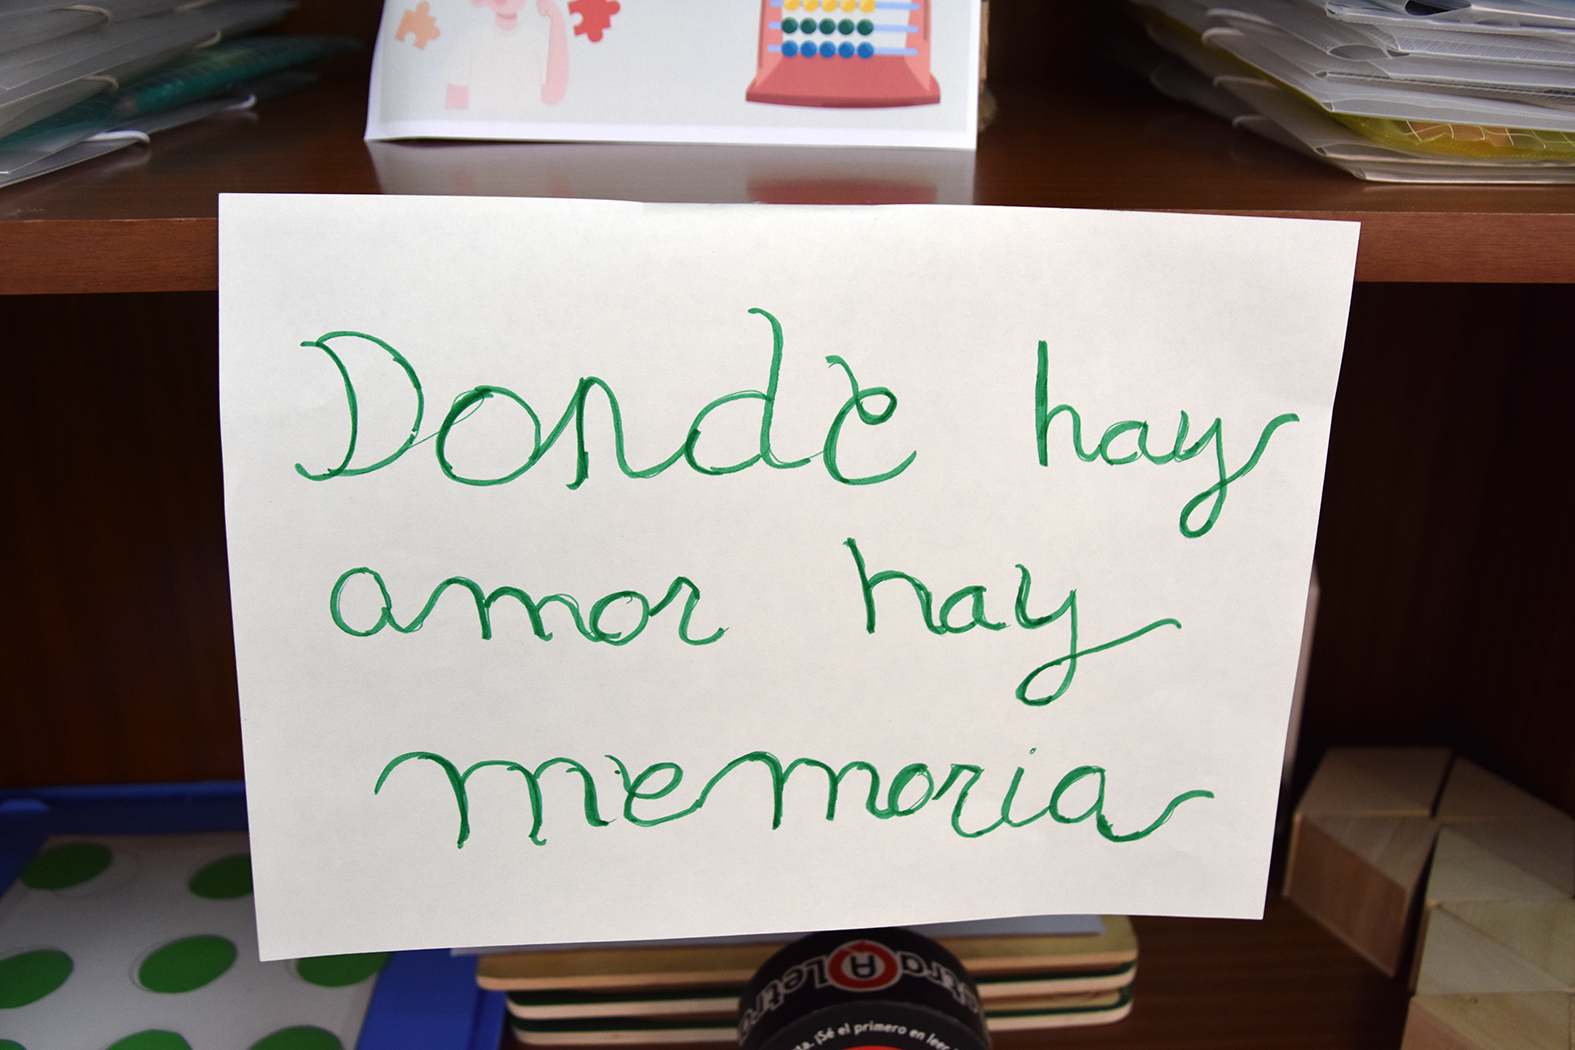 Donde hay
amor hay
memoria
Letra
¡Sé el primero en leer